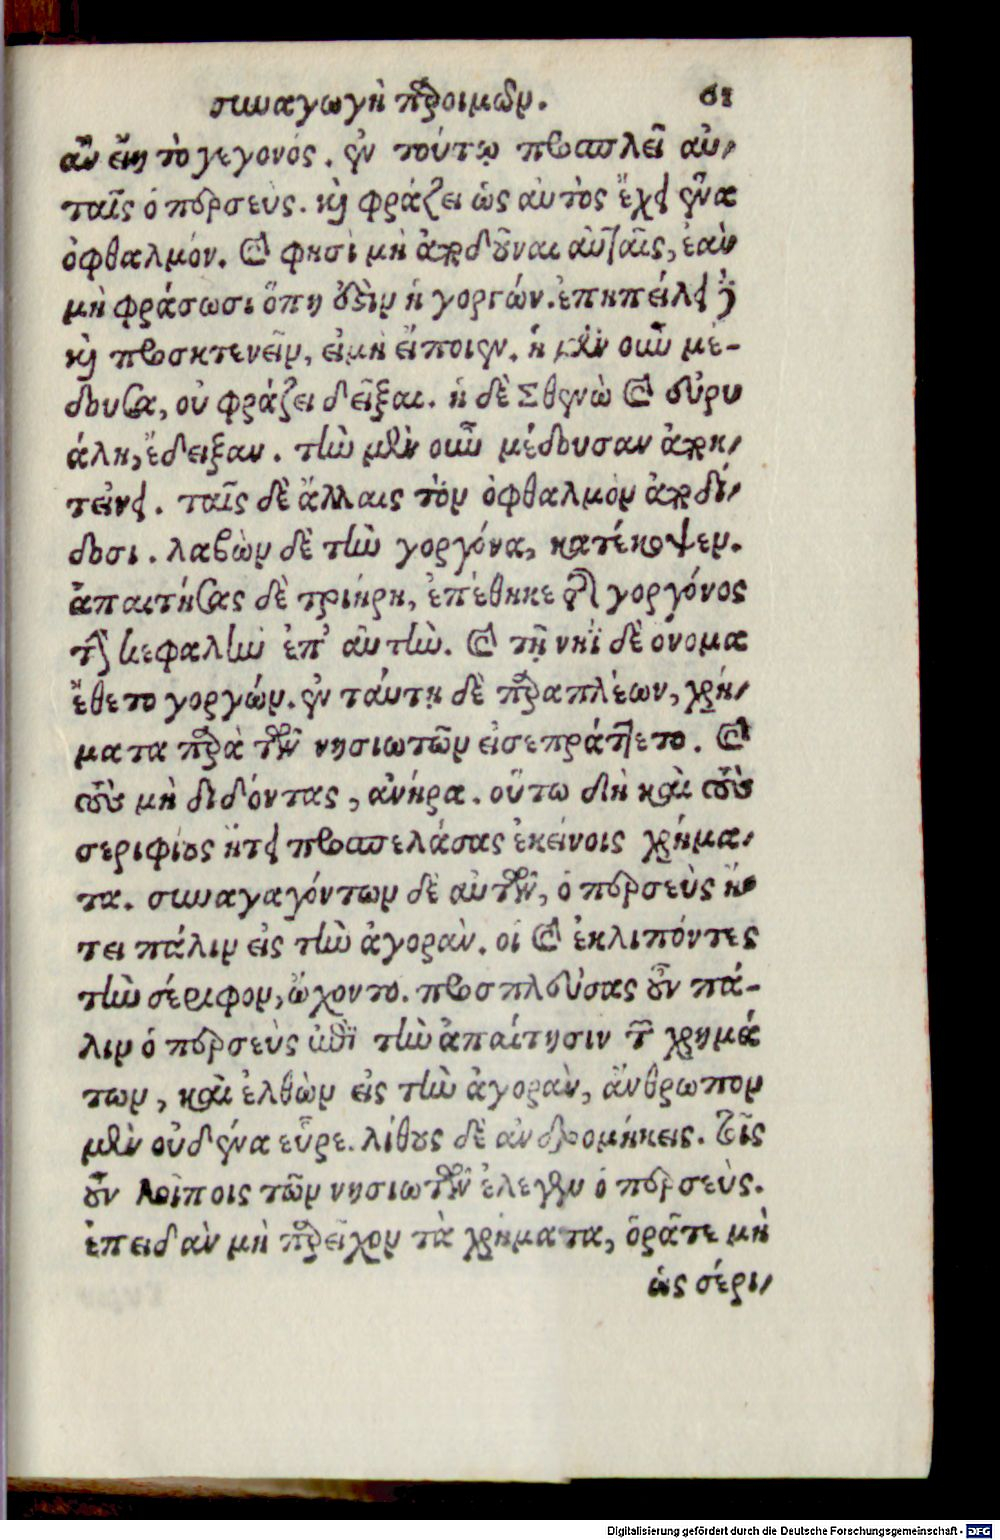 συναγωγὴ παροιμιῶν. 61
ἂν εἴη τὸ γεγονός. ἐν τούτῳ προσπλεῖ αὐ-
ταῖς ὁ περσεὺς. καὶ φράζει ὡς αὐτὸς ἔχει ἕνα
ὀφθαλμόν. καὶ φησὶ μὴ ἀποδοῦναι αὐταῖς, ἐὰν
μὴ φράσωσι ὅπη ἐστὶν ἡ γοργών. ἐπηπείλει
καὶ προσκτενεῖν, εἰ μὴ εἴποιεν. ἡ μὲν οὖν μέ-
δουσα, οὐ φράζει δεῖξαι. ἡ δὲ Σθενὼ καὶ εὐρυ
άλη, ἔδειξαν. τὴν μὲν οὖν μέδουσαν ἀποκ-
τείνει. ταῖς δὲ ἄλλαις τὸν ὀφθαλμὸν ἀποδί-
δοσι. λαβὼν δὲ τὴν γοργόνα, κατέκοψεν.
ἀπαιτήσας δὲ τριήρη, ἐπέθηκε τῆς γοργόνος
τὴν κεφαλὴν ἐπ' αὐτὴν. καὶ τῇ νηῒ δὲ ὀνομα
ἔθετο γοργών. ἐν ταύτῃ δὲ παραπλέων, χρή-
ματα παρὰ τῶν νησιωτῶν εἰσεπράττετο. καὶ
τοὺς μὴ διδόντας, ἀνήρα. οὕτω δὴ καὶ τοὺς
σεριφίους ᾔτει προσπελάσας ἐκείνοις χρήμα-
τα. συναγαγόντων δὲ αὐτῶν, ὁ περσεὺς ᾔ
τει πάλιν εἰς τὴν ἀγορὰν. οἱ καὶ ἐκλιπόντες
τὴν σέριφον, ᾤχοντο. προσπλεύσας οὖν πά-
λιν ὁ περσεὺς ἐπὶ τὴν ἀπαίτησιν τῶν χρημά
των, καὶ ἐλθὼν εἰς τὴν ἀγορὰν, ἄνθρωπον
μὲν οὐδένα εὗρε. λίθους δὲ ἀνδρομήκεις. τοῖς
οὖν λοιποις τῶν νησιωτῶν ἔλεγεν ὁ περσεὺς.
ἐπειδὰν μὴ παρεῖχον τὰ χρήματα, ὁρᾶτε μὴ
ὡς σέρι-
Digitalisierung gefördert durch die Deutsche Forschungsgemeinschaft - DFG